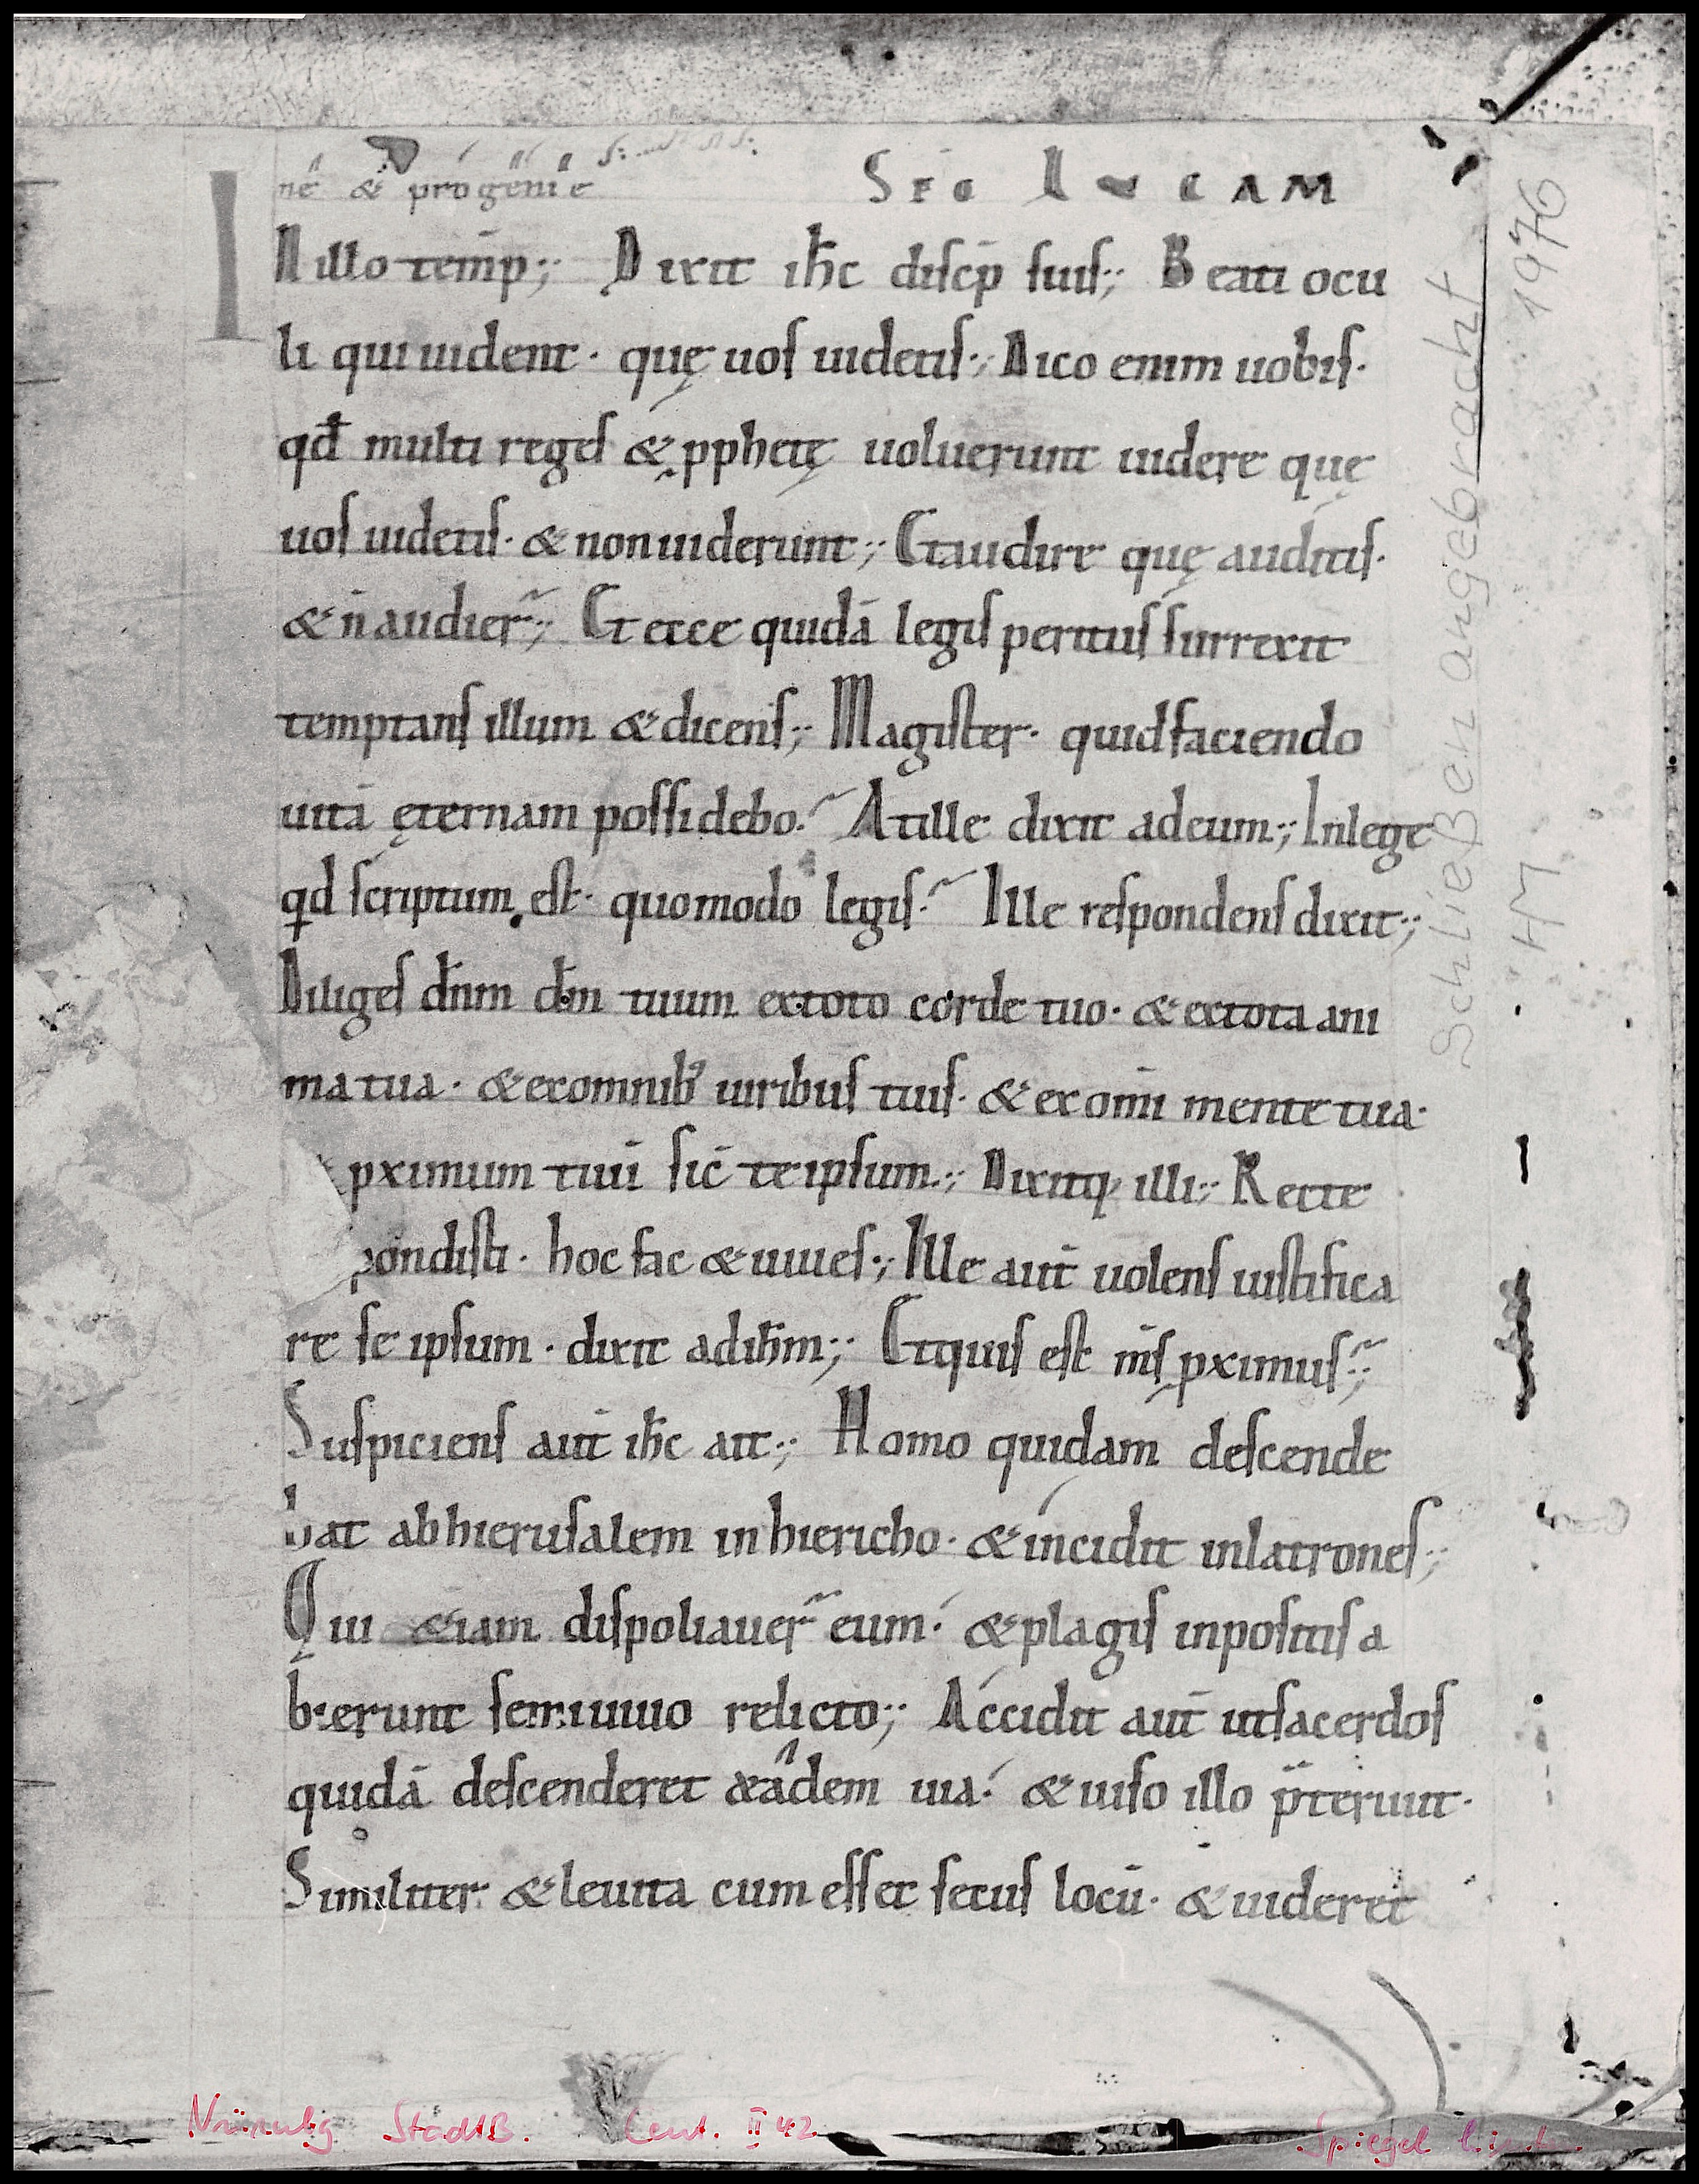 nē & progenie Sec Lucam
IN illo temp̄;; Dixit ih̄c discip̄ suis;; Beati ocu
li qui uident· quę uos uidetis·; Dico enim uobis·
qđ multi reges & pphetę uoluerunt uidere quę
uos uidetis· & non uiderunt;; Et audire quę auditis·
& n̄ audier̃;; Et ecce quidā legis peritus surrexit
temptans illum & dicens;; Magister· quid faciendo
uitā ęternam possidebo? At ille dixit ad eum;; In lege
qd scriptum est· quomodo legis? Ille respondens dixit;;
Diliges dn̄m dm̄ tuum ex toto corde tuo· & ex tota ani
ma tua· & ex omnib; uiribus tuis· & ex om̄i mente tua·
& pximum tuū sic̄ te ipsum·; Dixitq; illi;; Recte
pondisti· hoc fac & uiues·; Ille aut̄ uolens iustifica
re se ipsum· dixit ad ih̄m;; Et quis est m̄s pximus?;
Suspiciens aut̄ ih̄c ait;; Homo quidam descende
bat ab hierusalem in hiericho· & incidit in latrones;;
Qui &iam dispoliauer̃ eum· & plagis inpositis a
bierunt semiuiuo relicto;; Accidit aut̄ ut sacerdos
quidā descenderet eadem uia· & uiso illo p̄teriuit·
Similiter & leuita cum esset secus locū· & uideret
Schließen angebracht
1976
HM
Nürnbg StadtB. Cent. II 42 Spiegel hinten